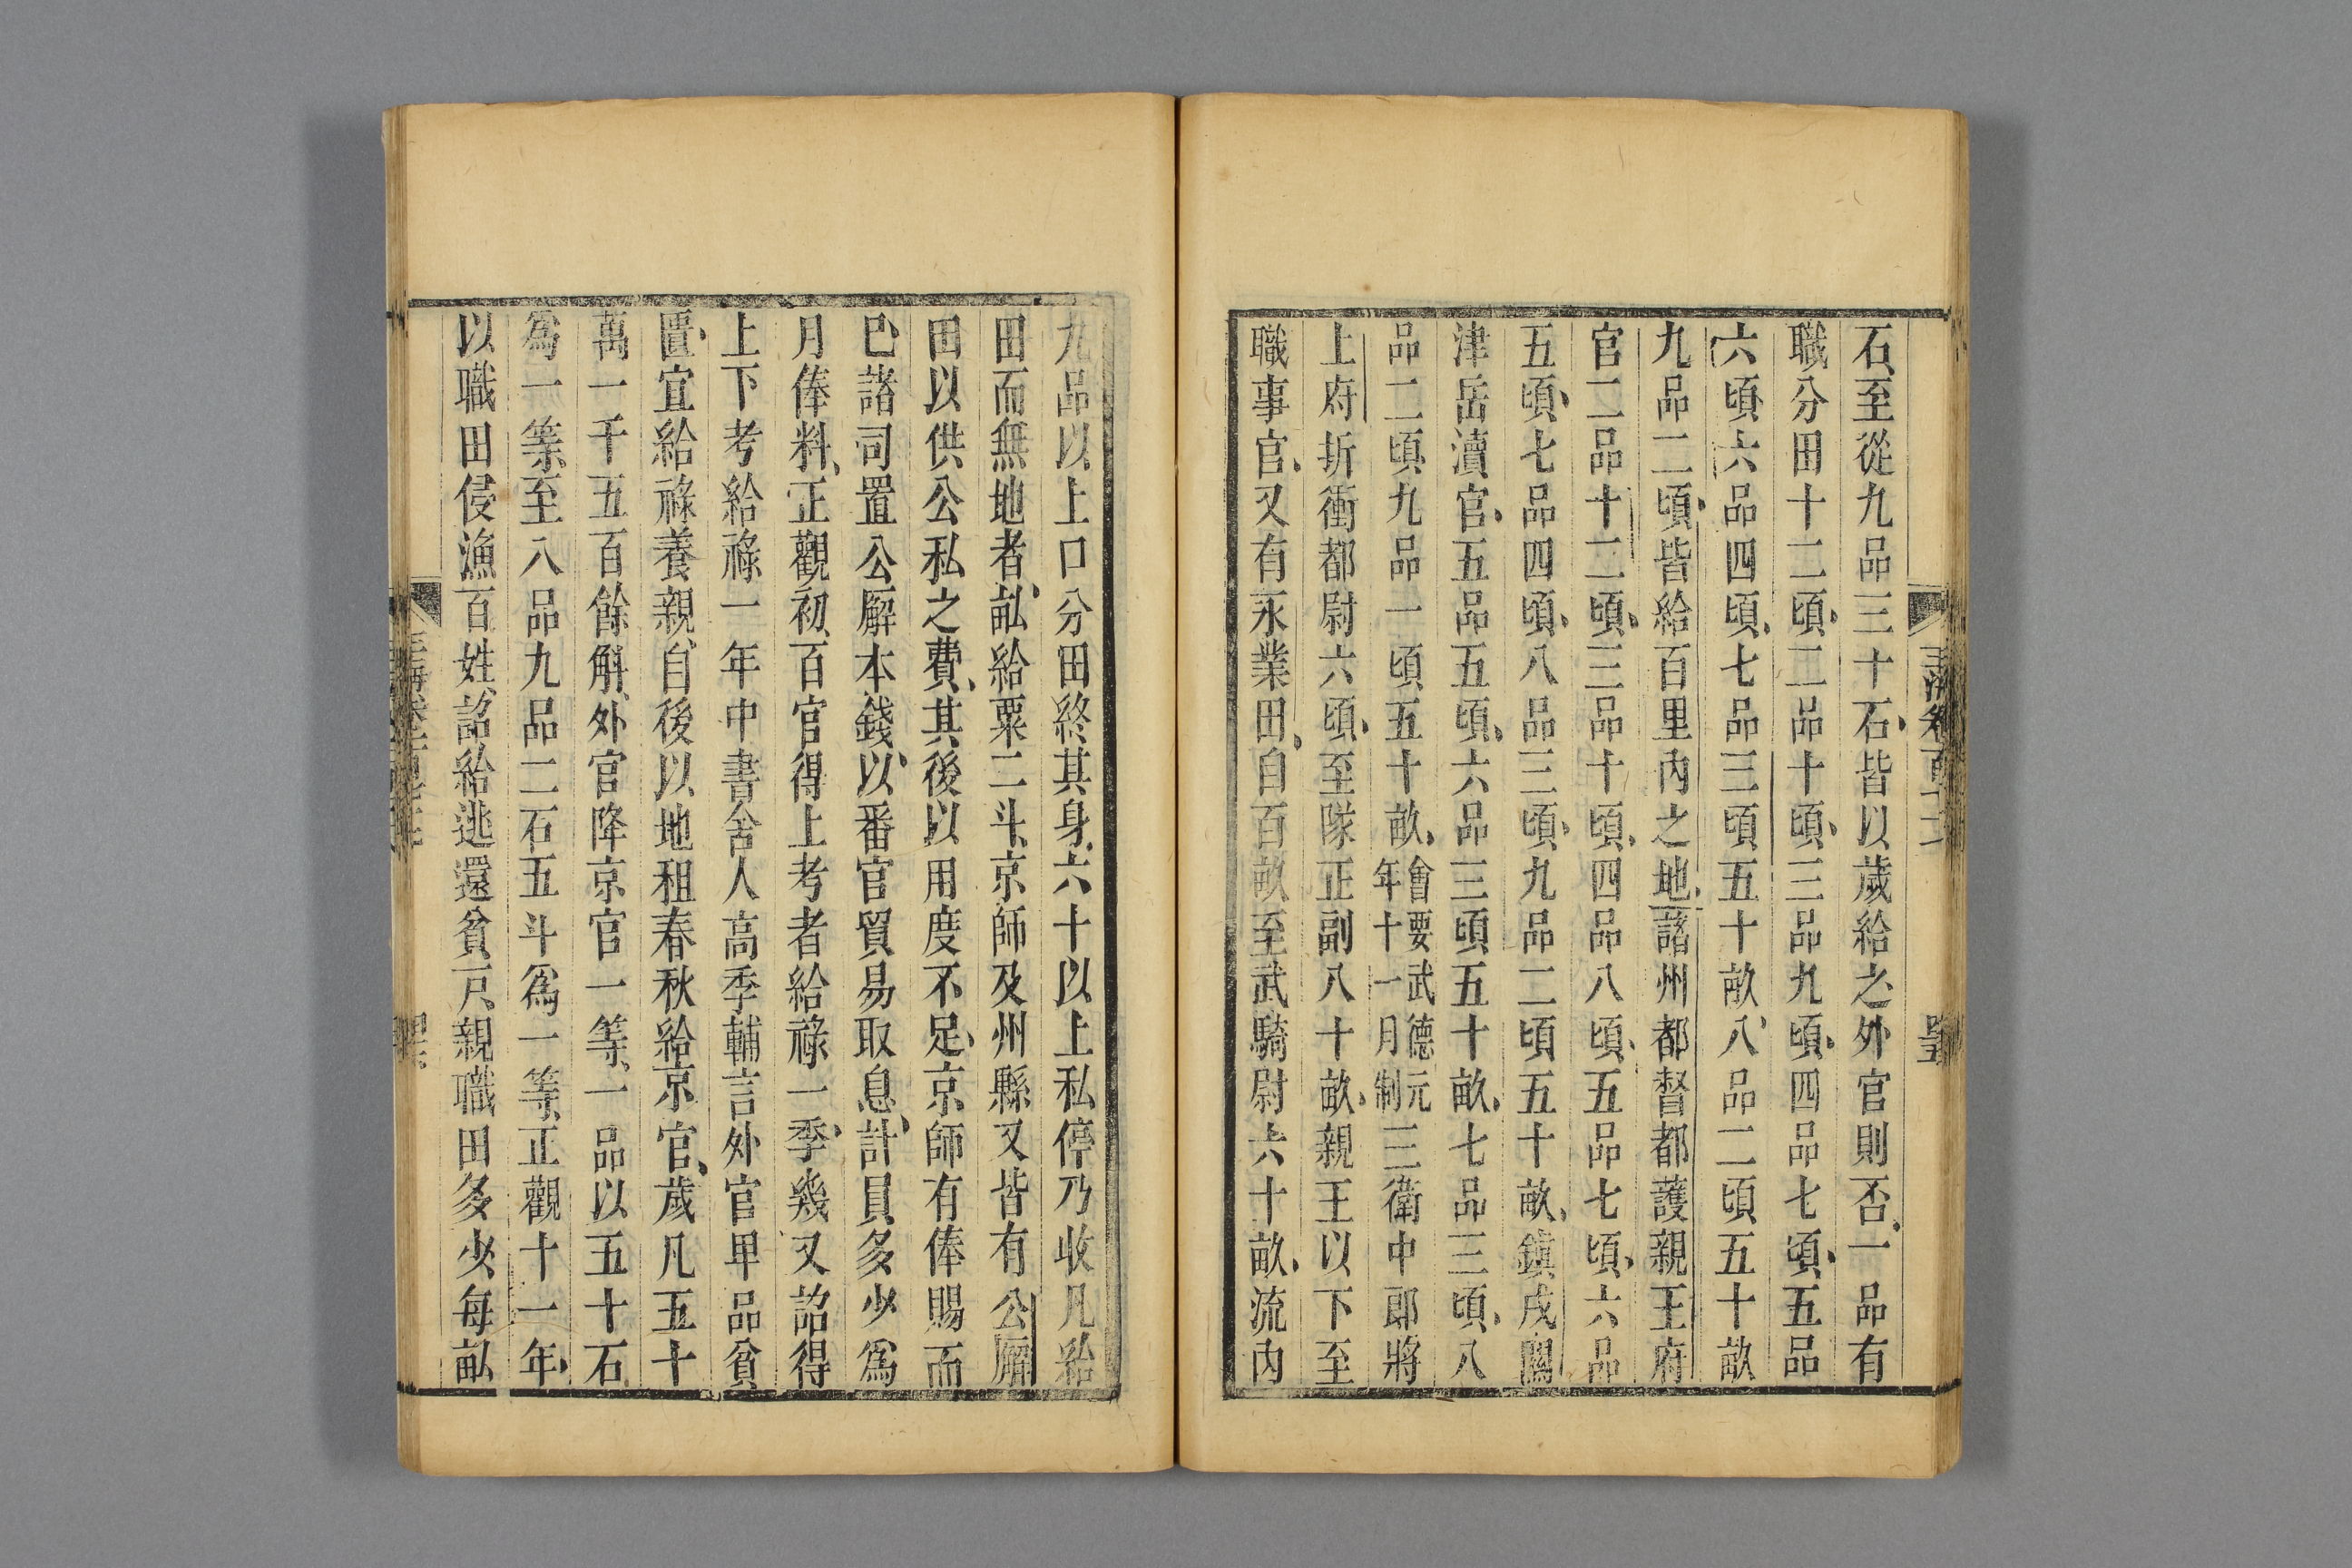 石至從九品三十石皆以歲給之外官則否一品有
職分田十二頃二品十頃三品九頃四品七頃五品
六頃六品四頃七品三頃五十畝八品二頃五十畝
九品二頃皆給百里內之地諸州都督都護親王府
官二品十二頃三品十頃四品八頃五品七頃六品
五頃七品四頃八品三頃九品二頃五十畝鎮戍關
津岳瀆官五品五頃六品三頃五十畝七品三頃八
品二頃九品一頃五十畝會要武德元年十一月制三衛中郎將
上府折衝都尉六頃至隊正副八十畝親王以下至
職事官又有永業田自百畝至武騎尉六十畝流內
九品以上口分田終其身六十以上私停乃收凡給
田而無地者畝給粟二斗京師及州縣又皆有公廨
田以供公私之費其後以用度不足京師有俸賜而
已諸司置公廨本錢以番官貿易取息計員多少爲
月俸料正觀初百官得上考者給祿一季幾又詔得
上下考給祿一年中書舍人高季輔言外官卑品貧
匱宜給祿養親自後以地租春秋給京官歲凡五十
萬一千五百餘斛外官降京官一等一品以五十石
爲一等至八品九品二石五斗爲一等正觀十一年
以職田侵漁百姓詔給逃還貧戶視職田多少每畝